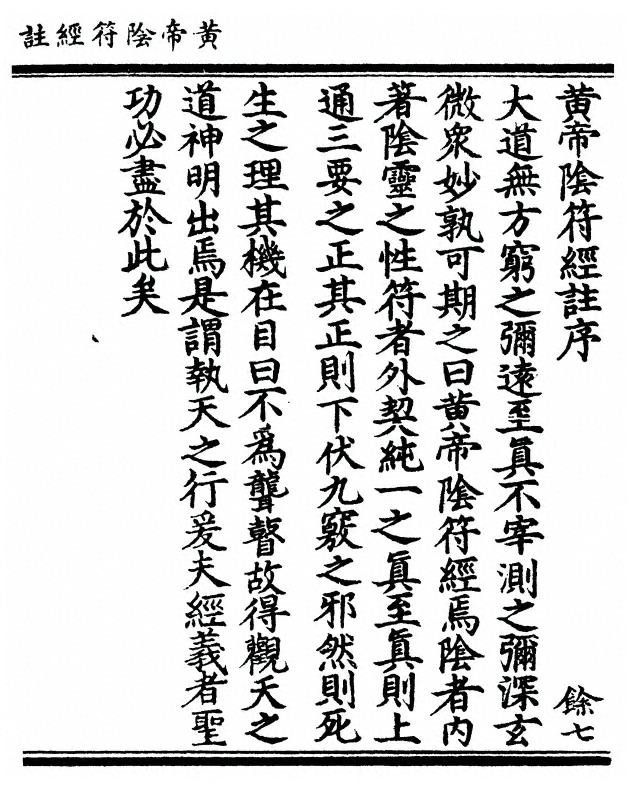 黃帝陰符經註
黃帝陰符經註序
餘七
大道無方窮之彌遠至真不宰測之彌深玄
微衆妙孰可期之曰黃帝陰符經焉陰者内
著陰靈之性符者外契純一之真至真則上
通三要之正其正則下伏九竅之邪然則死
生之理其機在目曰不爲聾瞽故得觀天之
道神明出焉是謂執天之行爰夫經義者聖
功必盡於此矣